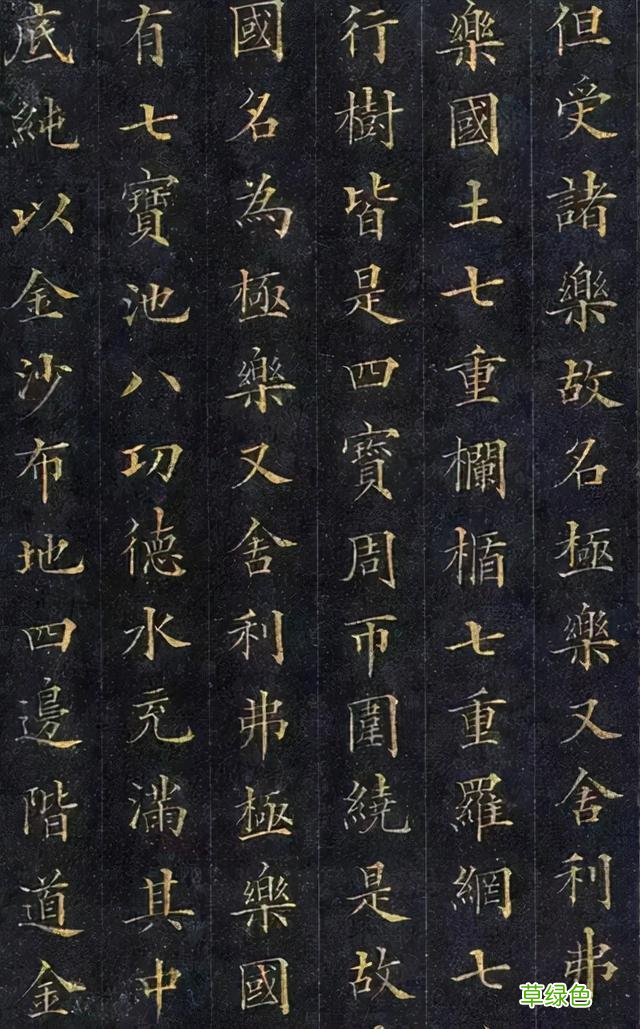 但受諸樂故名極樂又舍利弗
樂國土七重欄楯七重羅網七
行樹皆是四寶周帀圍繞是故
國名為極樂又舍利弗極樂國
有七寶池八功德水充滿其中
底純以金沙布地四邊階道金
草绿色